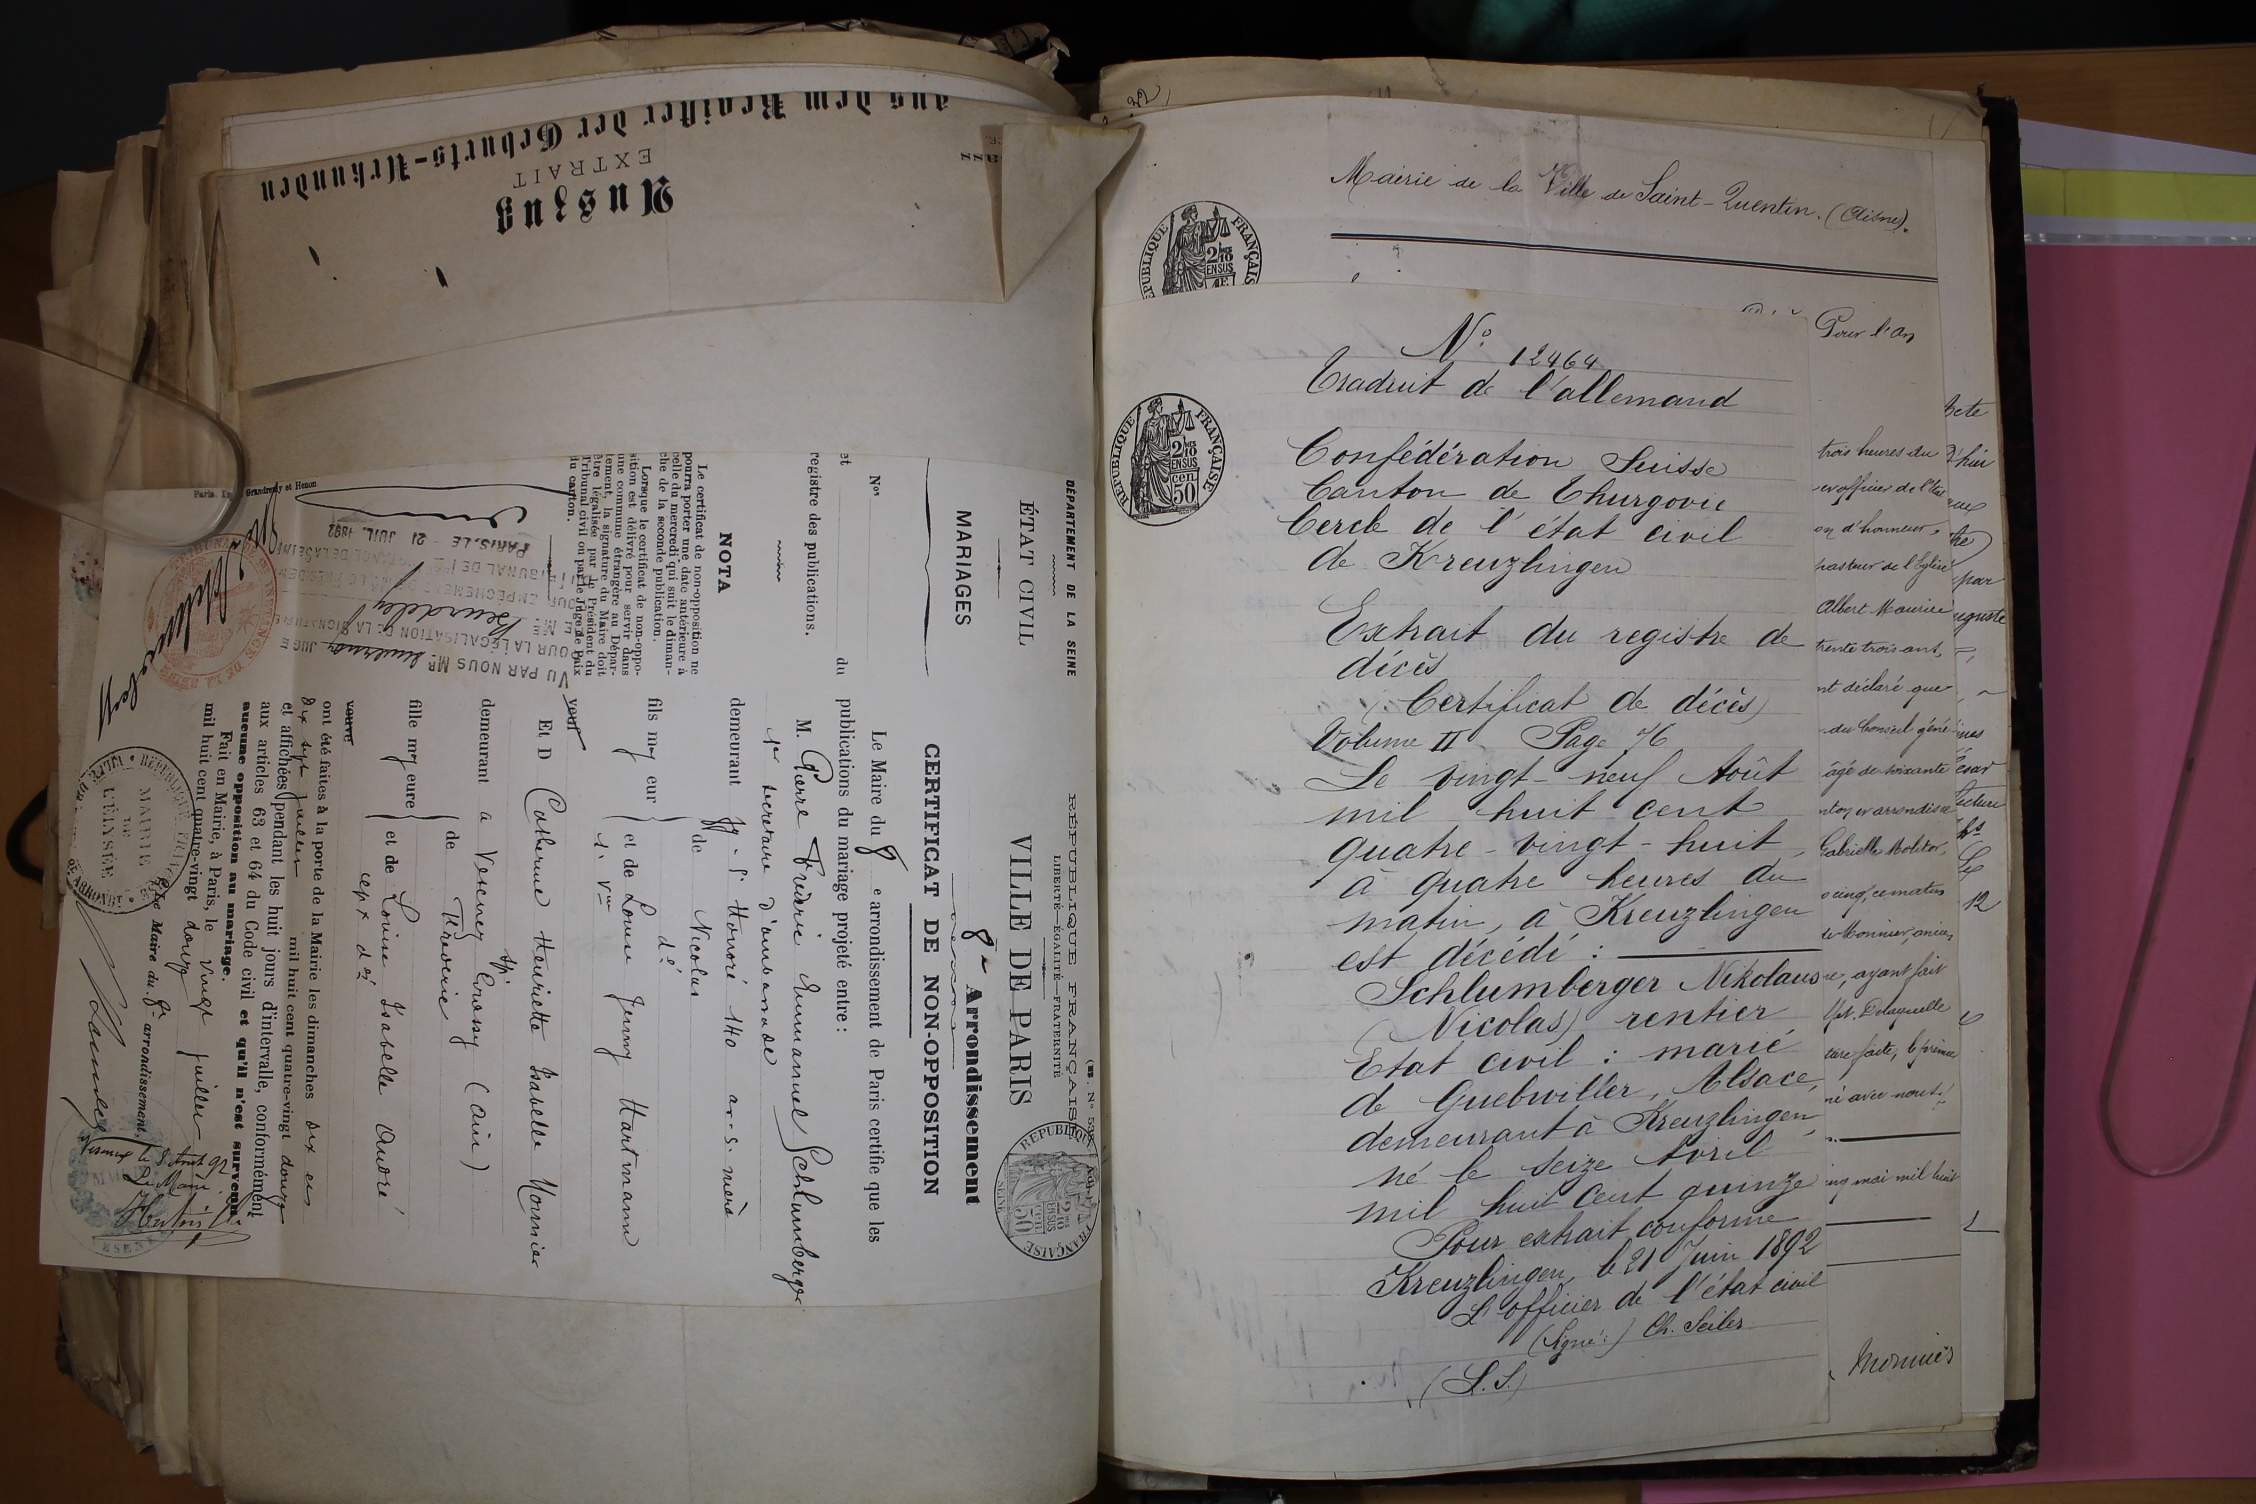 aus dem Register der Geburts-Urkunden
EXTRAIT
Auszug
DÉPARTEMENT DE LA SEINE
ÉTAT CIVIL
MARIAGES
Nos
et du
registre des publications.
NOTA
Le certificat de non-opposition ne
pourra porter une date antérieure à
celle du mercredi qui suit le diman-
che de la seconde publication.
Lorsque le certificat de non-oppo-
sition est délivré pour servir dans
une commune étrangère au Dépar-
tement, la signature du Maire doit
être légalisée par le Président du
Tribunal civil ou par le Juge de Paix
du canton.
VU PAR NOUS Mr JUGE
POUR LA LÉGALISATION DE LA SIGNATURE
DE Mr Beurdeley
POUR EMPÊCHEMENT DE Mr LE PRÉSIDENT
DU TRIBUNAL DE 1re INSTANCE DE LA SEINE
PARIS, LE - 21 JUIL. 1892
Paris. Grandremy et Henon
RÉPUBLIQUE FRANÇAISE
LIBERTÉ—ÉGALITÉ—FRATERNITÉ
VILLE DE PARIS
8e Arrondissement
CERTIFICAT DE NON-OPPOSITION
Le Maire du 8e arrondissement de Paris certifie que les
publications du mariage projeté entre :
M. Pierre Frédéric Emmanuel Schlumberger
1er secrétaire d'ambassade
demeurant fg-St Honoré 140 av. s. mère
fils majeur de Nicolas
dcd
et de Louise Jenny Hartmann
s. Vve
veuf
Et D Catherine Henriette Isabelle Monnier
demeurant à Versenex Grossy (Ain)
fille mineure de
et de Louise Isabelle André
veuve
ont été faites à la porte de la Mairie les dimanches dix et
dix sept juillet mil huit cent quatre-vingt douze
et affichées pendant les huit jours d'intervalle, conformément
aux articles 63 et 64 du Code civil et qu'il n'est survenu
aucune opposition au mariage.
Fait en Mairie, à Paris, le vingt juillet
mil huit cent quatre-vingt douze
Le Maire du 8e arrondissement,
RÉPUBLIQUE FRANÇAISE
MAIRIE
DE
L'ÉLYSÉE
Le Maire
Mairie de la Ville de Saint-Quentin. (Aisne).
RÉPUBLIQUE FRANÇAISE
2/10 EN SUS
N° 12464
Traduit de l'allemand
RÉPUBLIQUE FRANÇAISE
2/10 EN SUS
50 cen
Confédération Suisse
Canton de Thurgovie
Cercle de l'état civil
de Kreuzlingen
Extrait du registre de
décès
(Certificat de décès)
Volume II Page 76
Le vingt-neuf Août
mil huit cent
quatre-vingt-huit,
à quatre heures du
matin, à Kreuzlingen
est décédé :
Schlumberger Nikolaus
(Nicolas) rentier
Etat civil : marié
de Guebwiller, Alsace,
demeurant à Kreuzlingen,
né le seize Avril
mil huit cent quinze
Pour extrait conforme
Kreuzlingen, le 21 Juin 1892
L'officier de l'état civil
(Signé :) Ch. Seiler
(L.S.)
Pour l'an
trois heures du
er officier de l'état
on d'honneur,
pasteur de l'Eglise
Albert Maurice
trente trois ans,
nt déclaré que
du Conseil géné
âgé de soixante
nton et arrondisse
Gabrielle Molitor,
cinq, ce matin
de Monnier, ancien
re, ayant fait
ture faite, le premier
né avec nous.
inq mai mil huit
Monnier
Acte
par
Auguste
12